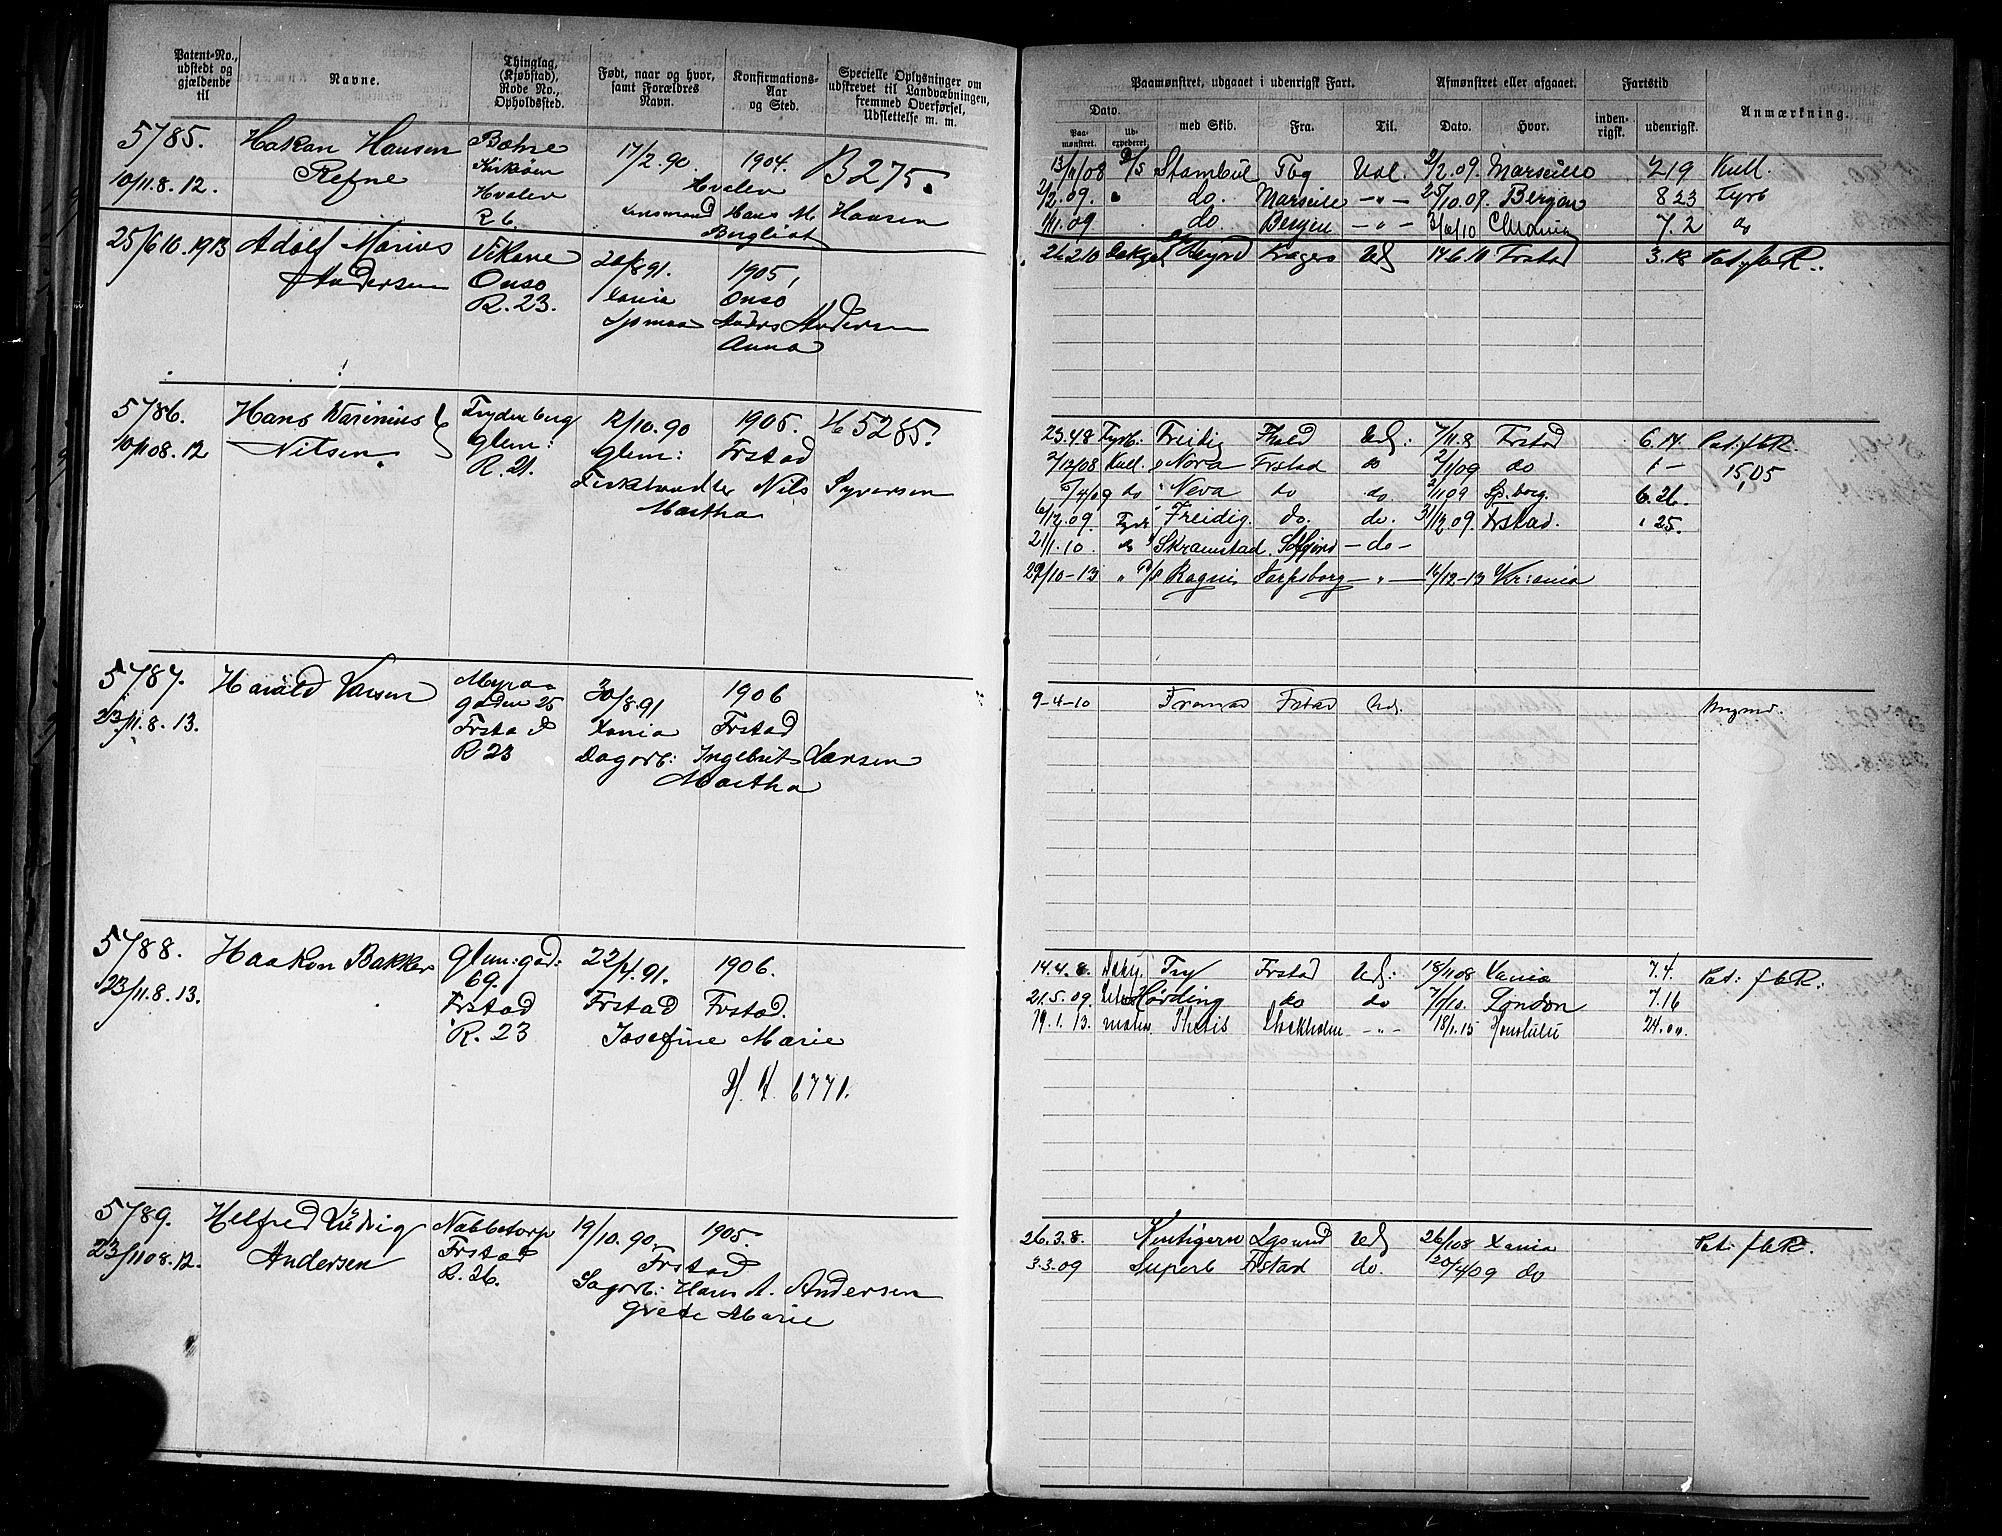 Patent-No., udstedt og gjældende til
Navne.
Thinglag, (Kjøbstad), Rode No., Opholdssted.
Født, naar og hvor, samt Forældres Navn.
Konfirmations-Aar og Sted.
Specielle Oplysninger om udskrevet til Landvæbningen, fremmed Overførsel, Udslettelse m. m.
5785.
10/11.8.12.
Hakan Hansen
Refne
Kirkøen
Hvaler
R 6.
17/2.90.
1904.
Hvaler
B 275.
Hans M. Hansen
Bergliot
25/6 10.1913
Adolf Marius
Andersen
Vikane
Onsø
R. 23.
20/8.91.
Xania
1905,
Onsø
Anders Andersen
Anna
5786.
10/11 08.12
Hans Warinius
Nilsen.
Frydenberg
Glem:
R. 21.
12/10.90
Glem:
1905.
Frstad
H 5285.
Fiskhandler Nils Syversen
Martha
5787.
23/11.8.13.
Harald Larsen
Myra-
gaden 25
Frstad
R 23
30/8.91
Xania
1906
Frstad
Dagarb: Ingebrit Larsen
Martha
5788.
23/11.8.13.
Haakon Bakker
Glem:gad:
69.
Frstad
R. 23
22/4.91.
Frstad
1906.
Frstad.
Josefine Marie
H. 6771.
5789.
23/11 08.12.
Helfred Ludvig
Andersen
Nabbetorp
Frstad
R. 26.
19/10.90.
1905.
Frstad
Sagarb: Hans A. Andersen
Grete Marie
Paamønstret, udgaaet i udenrigsk Fart.
Afmønstret eller afgaaet.
Fartstid
Anmærkning.
Dato.
Paa-mønstret.
Ud-expederet.
med Skib.
Fra.
Til.
Dato.
Hvor.
inden-rigsk.
udenrigsk.
13/11/08 D/S Stambul Tbg Udl. 2/2.09. Marseille 219 Kull.
2/2.09. do. Marseille -"- 25/10.09. Bergen 823 Fyrb
1/11.09. do. Bergen -"- 3/1/10 Chrania 7.2 do
26.2.10 Dæksg Kragerø Udl 14.6.10 Frstad 3.18 Pat: f b R.
23.4.8 Fyrb: Freidig Fhald Udl: 7/11.8 Frstad 6.14 Pat: f b R.
2/12/08 Kull. Nova Frstad do 2/1/09 do 1 - 15,05
5/4/09 do Neva do do 2/11 09 Sp.borg. 6.26.
6/12.09. Fyrb Freidig. do. do. 31/12.09. Frstad. 25.
21/1.10. do Skramstad. -do-
29/10-13 " D/S Ragni Sarpsborg -"- 16/12-13 Kr:ania
9-4-10 Frstad Udl. Yngmd.
14.4.8. Fry Frstad Udl: 18/11 08 Xania 7.4. Pat: f b R.
21.5.09. Hørding do do 7/1/10. London 7.16
19.1.13. matr Thetis Stockholm -"- 18/1.15 Honolulu 24.00.
26.3.8. Kentigern Udl 26/1 08 Xania Pat: f b R.
3.3.09 Superb Frstad do. 20/4/09 do